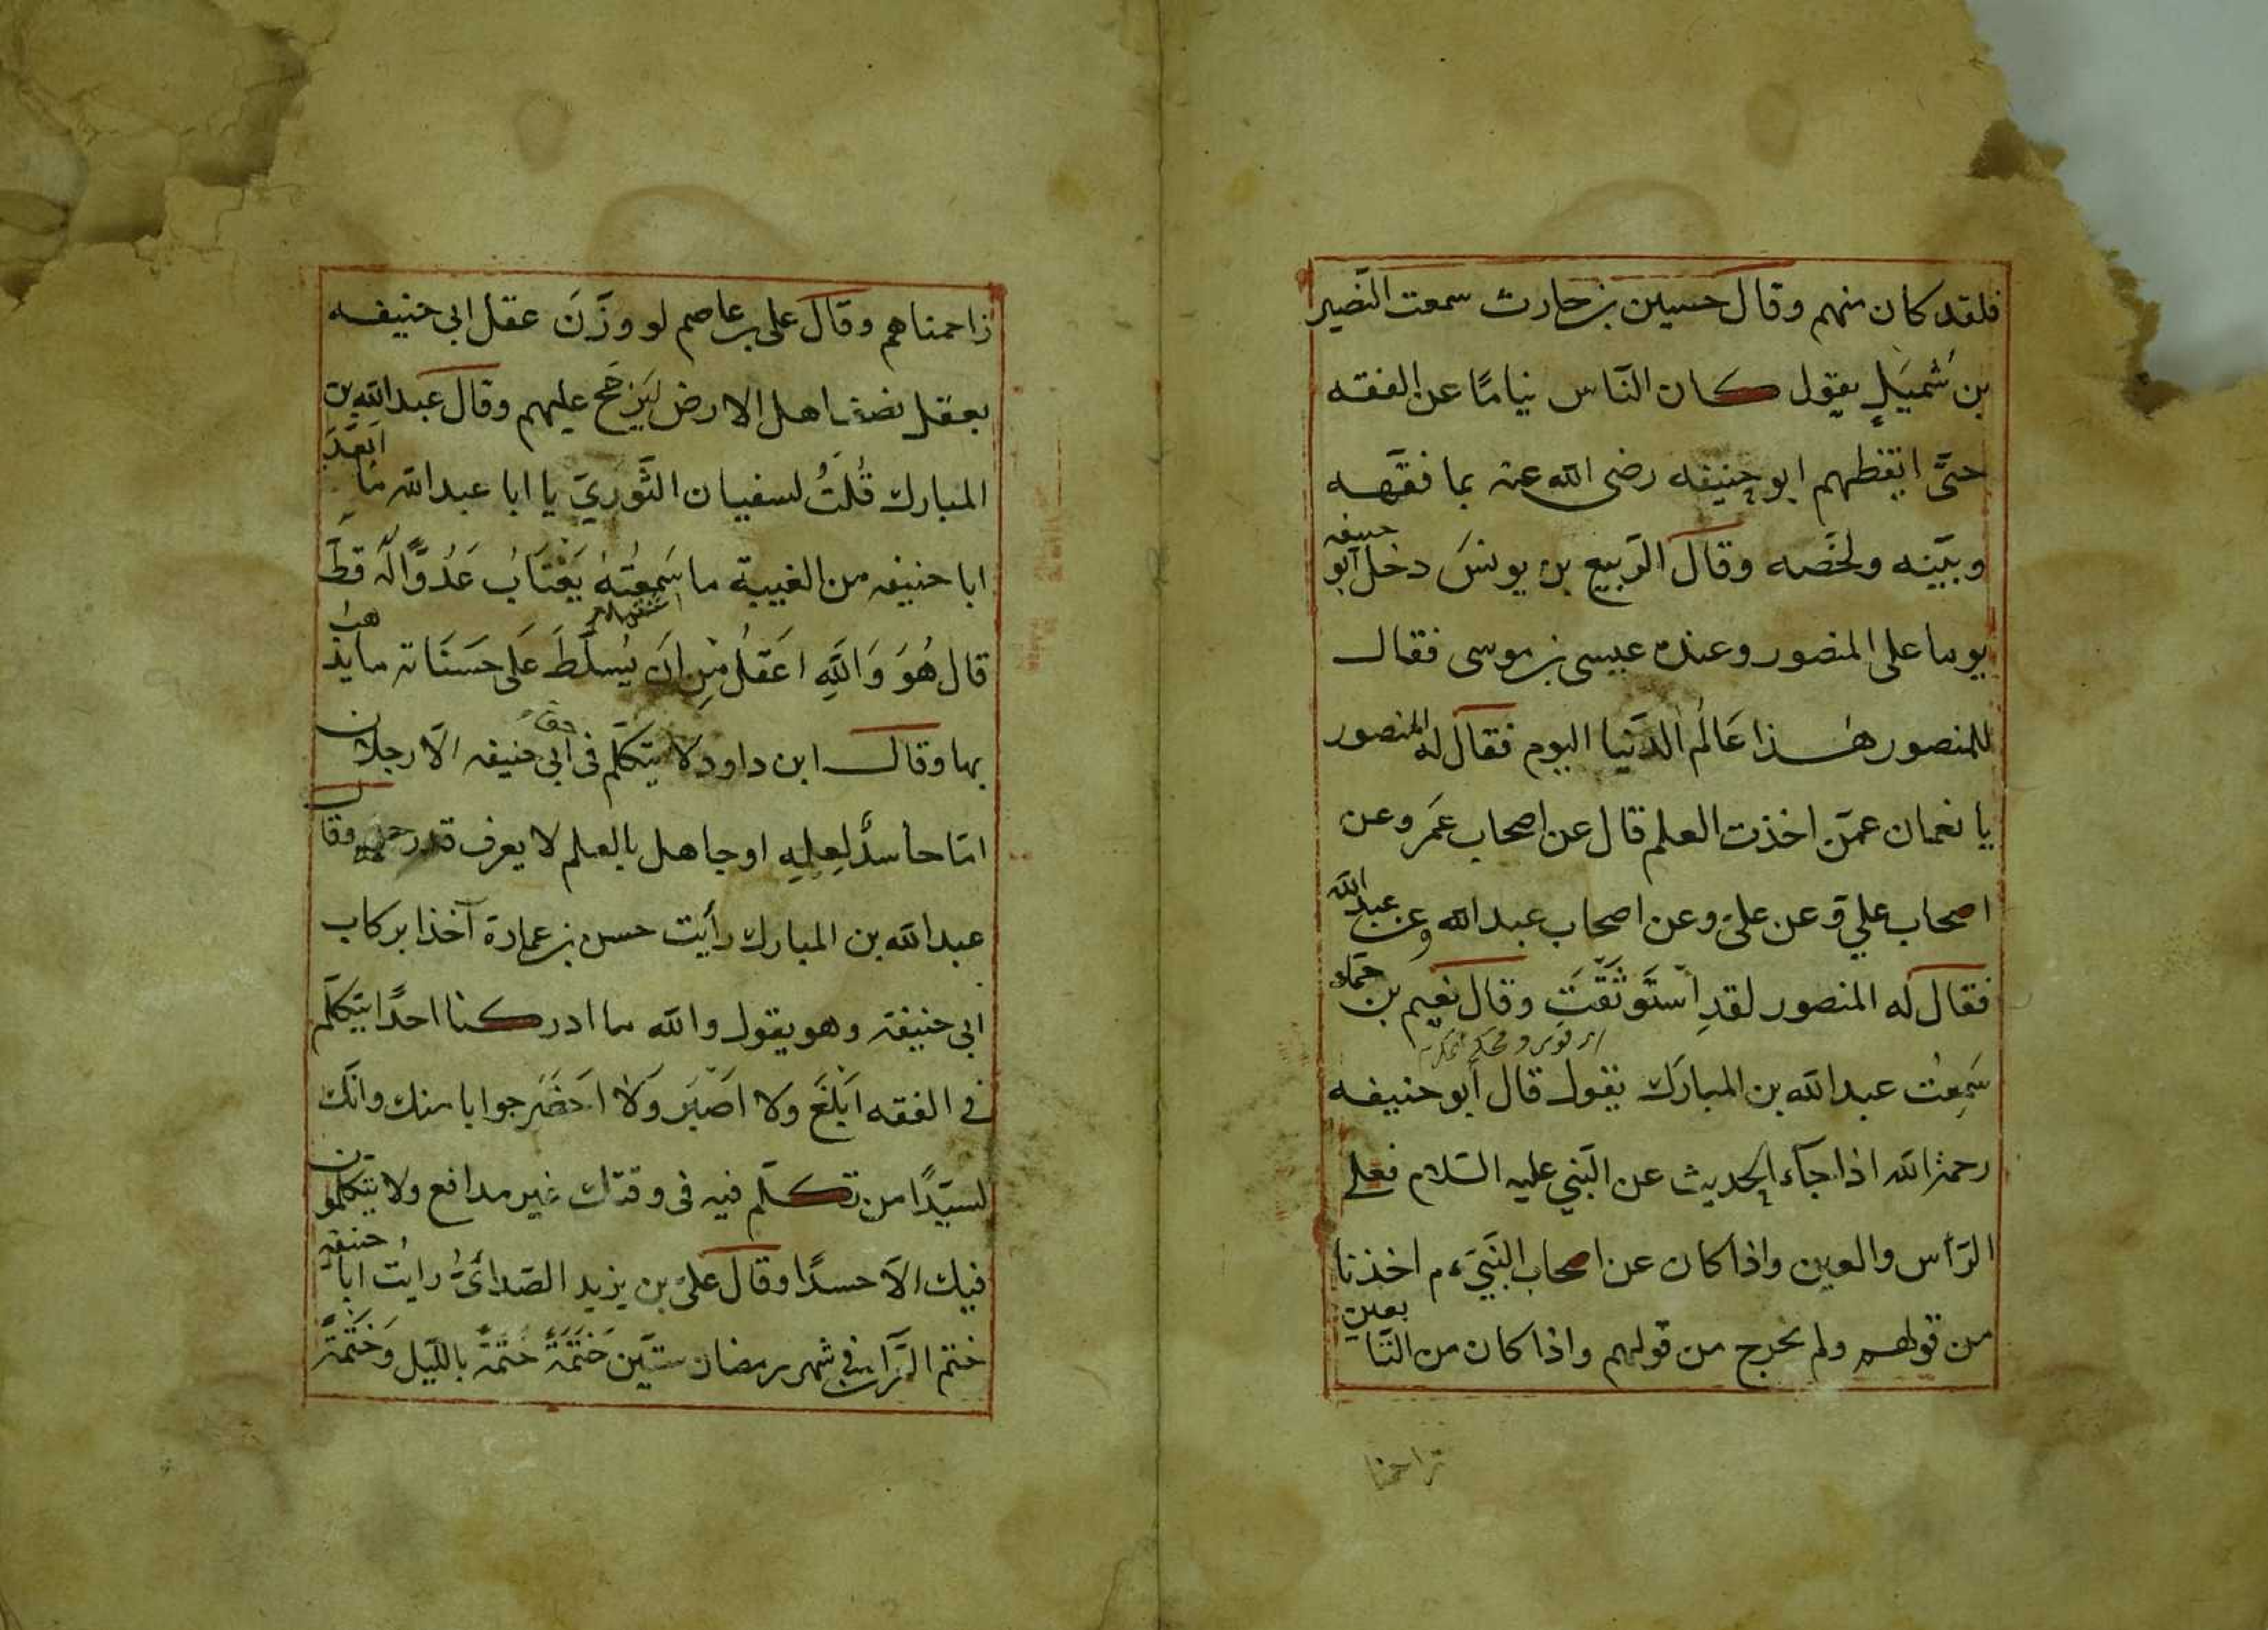 فلقد كان منهم وقال حسين بن حارث سمعت النضير
بن شُميَلٍ يقول كان النّاس نيامًا عن الفقه
حتَّى ايقظهم ابو حنيفه رضى الله عنه بما فقّهه
وبيّنه ولخّصه وقال الرّبيع بن يونسَ دخل ابو حنيفه
يوما على المنصور وعنده عيسى بن موسى فقال
للمنصور هذا عَالم الدّنيا اليوم فقال له المنصور
يا نعمان عمّن اخذت العلم قال عن اصحاب عمَر وعن
اصحاب علي وعن علىّ وعن اصحاب عبد الله وعن عبد الله
فقال له المنصور لقدِ اسْتَوثَقْتَ وقال نعيم بن حمّاد
سَمِعْت عبد الله بن المبارَك يقول قال أبو حنيفه
رحمه الله اذا جآء الحديث عن النّبي عليه السّلام فعلى
الرّأس والعين واذا كان عن اصحاب النَّبيّ ءم اخذنا
من قولهم ولم نخرج من قولهم واذا كان من التّابعين
زاحمناهم وقال على بن عاصم لو وَزَنَ عقل ابى حنيفه
بعقل نصف اهل الارض لَيَرْجَح عليهم وقال عبد الله بن
المبارك قُلتُ لسفيان الثَّوريّ يا ابا عبد الله ما اَبْعَدَ
ابا حنيفه من الغيبة ما سَمِعتُهُ يَغْتَابُ عَدُوًّا لَهُ قطَّ
قال هُوَ وَاللّهِ اَعقَلُ مِن اَن يُسلّطَ عَلى حَسَنَاته ما يذهب
بها وقال ابن داود لا يتكلّم فى ابى حنيفه الّا رجلان
امّا حاسدٌ لِعِلمِهِ او جاهل بالعلم لا يعرف قدر وقال
عبد الله بن المبارك رأيت حسن بن عمارة آخذا بركاب
ابى حنيفة وهو يقول والله ما ادركنا احدًا يتكلّم
فى الفقه ابْلَغَ ولا اَصْبَر وَلا اَحضَر جوابا منك وانّك
لسيّدًا من تكلّم فيه فى وقتك غير مدافع ولا يتكلّمون
فيك الّا حسدًا وقال علىّ بن يزيد الصّدائىّ رايت ابا حنيفه
ختم القرآن فى شهر رمضان ستّين خَتْمَةً ختمة باللّيل وَخَتْمَةً